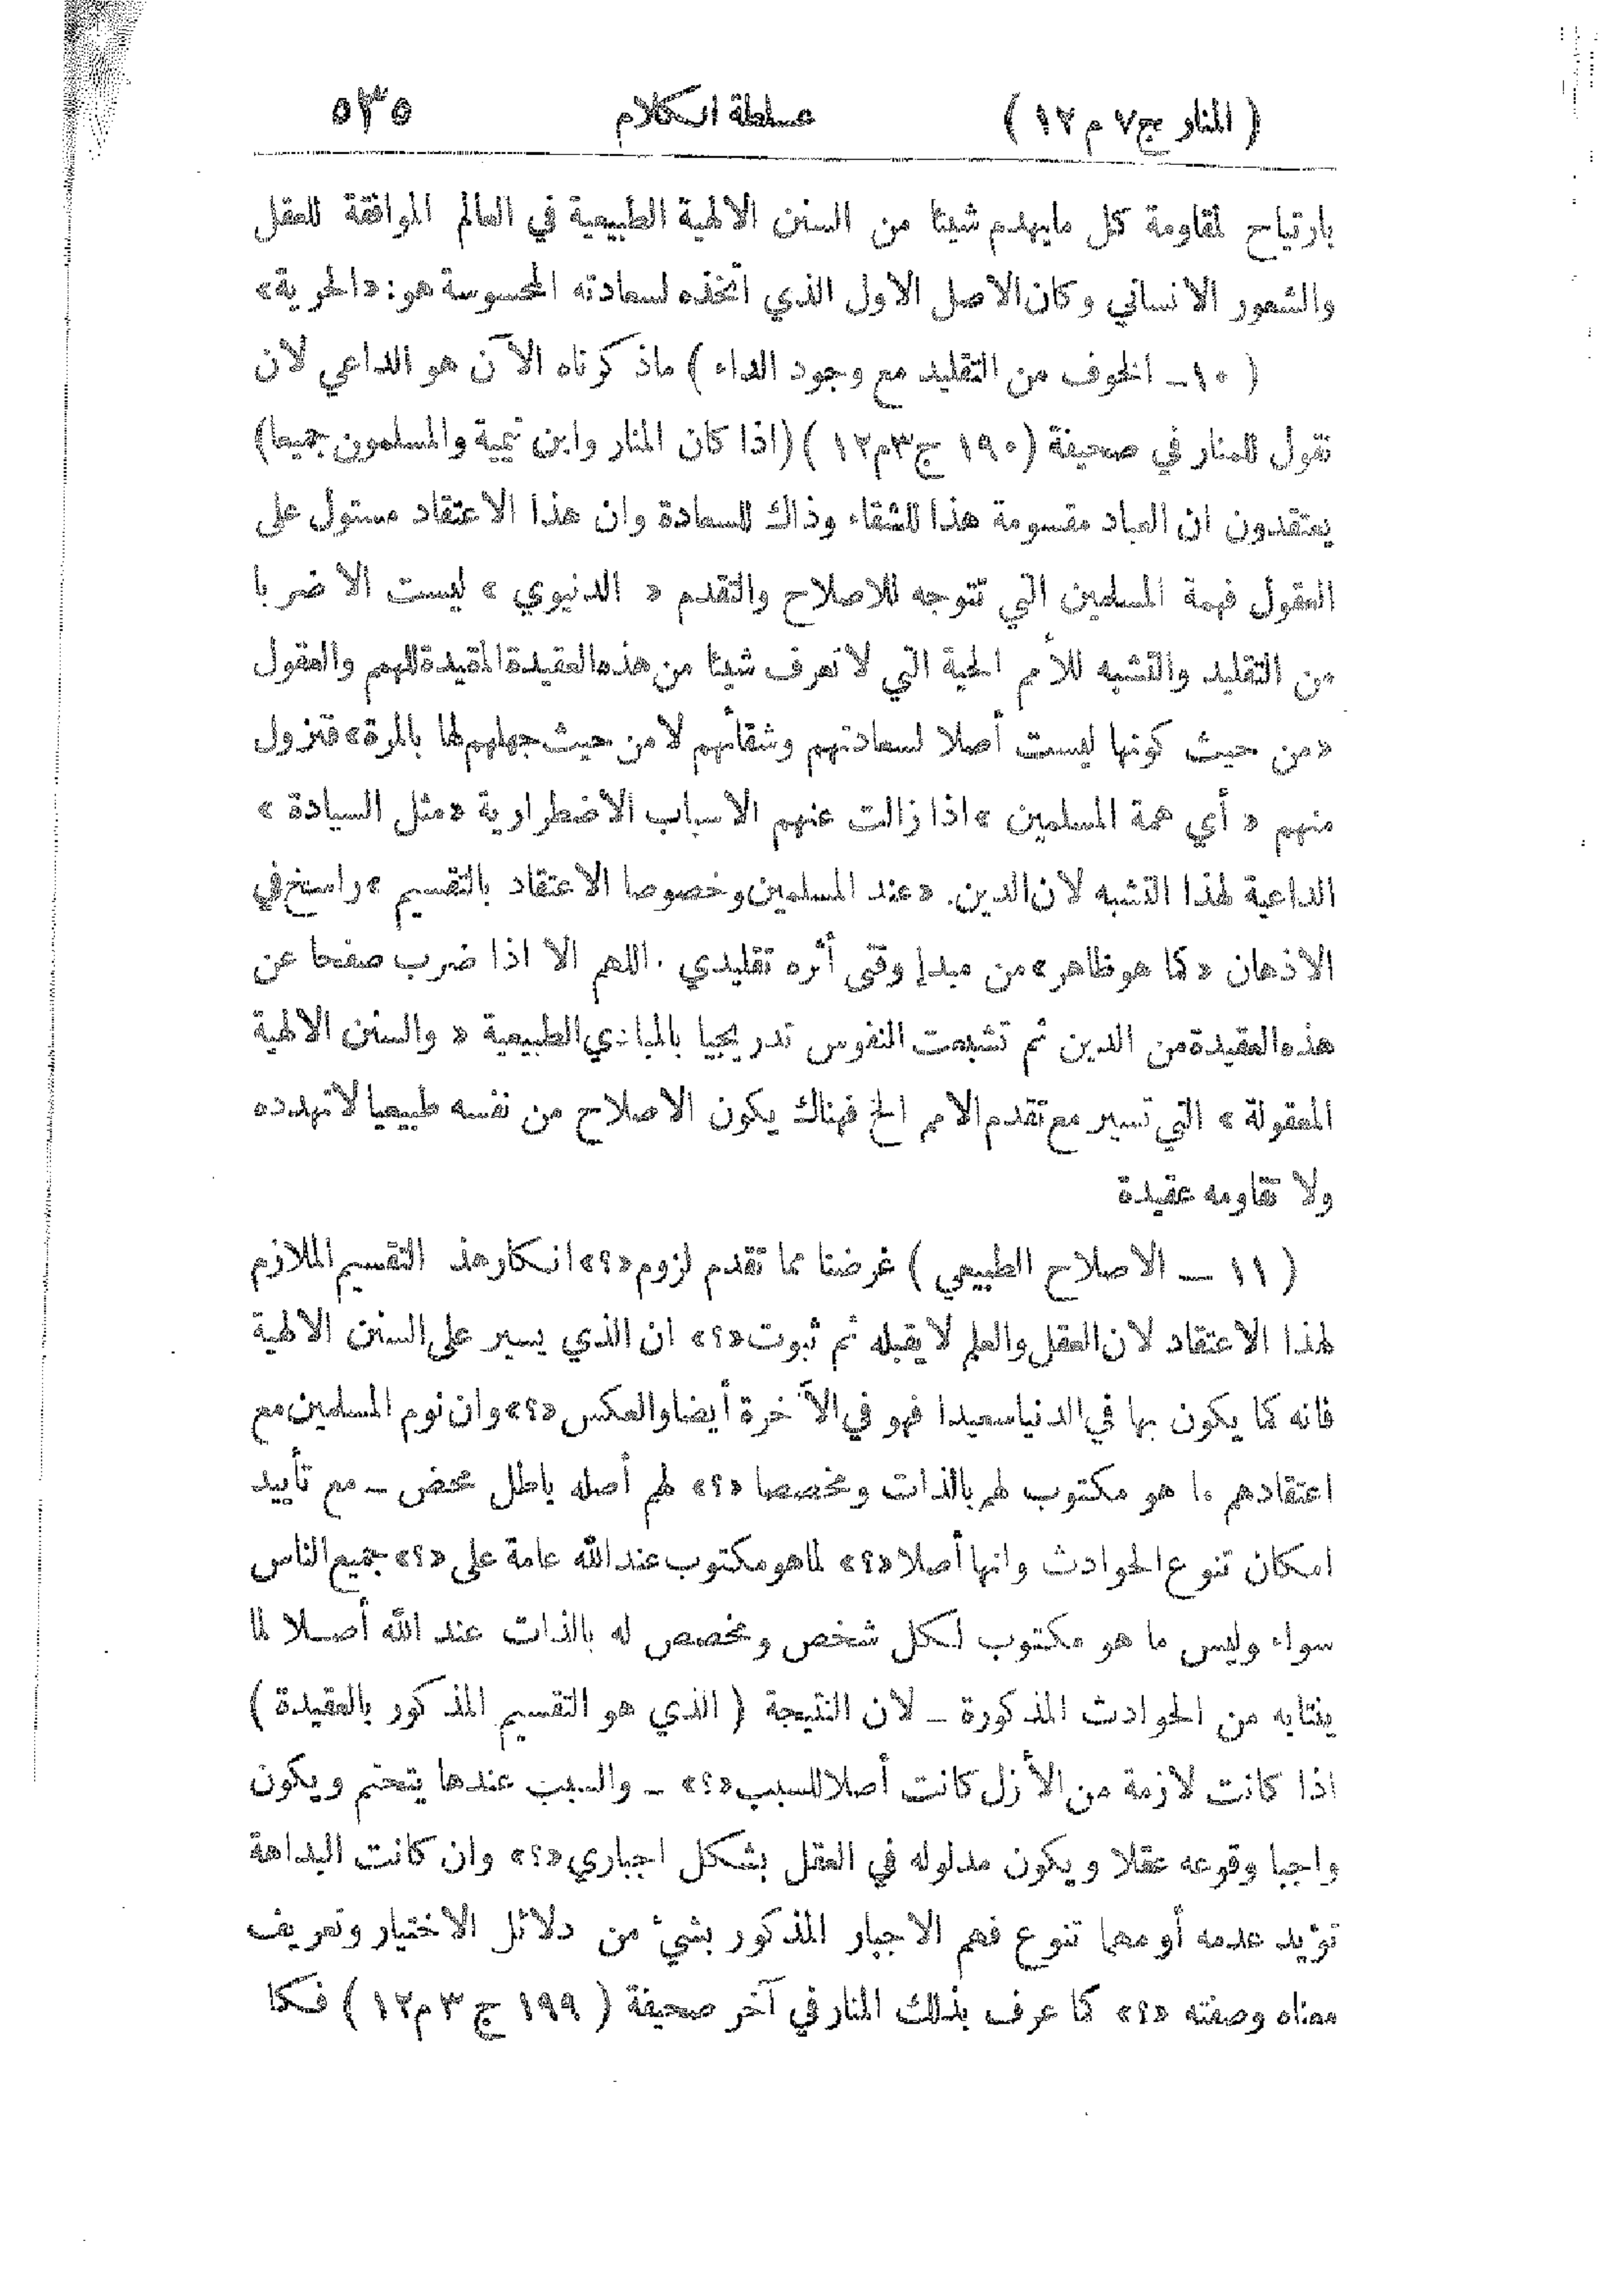 ( المنار ج٧ م ١٢ ) سلطة الكلام ٥٣٥
بارتياح لمقاومة كل مايهدم شيئا من السنن الالهية الطبيعية في العالم الموافقة للعقل
والشعور الانساني وكان الاصل الاول الذي اتخذه لسعادته المحسوسة هو : «الحرية»
( ١٠ـ الخوف من التقليد مع وجود الداء ) ماذكرناه الآن هو الداعي لان
نقول للمنار في صحيفة (١٩٠ ج٣م١٢ ) (اذا كان المنار وابن تيمية والمسلمون جميعا)
يعتقدون ان العباد مقسومة هذا للشقاء وذاك للسعادة وان هذا الاعتقاد مستول على
العقول فهمة المسلمين التي تتوجه للاصلاح والتقدم « الدنيوي » ليست الا ضربا
من التقليد والتشبه للأمم الحية التي لاتعرف شيئا من هذه العقيدة المقيدة للهمم والعقول
«من حيث كونها ليست أصلا لسعادتهم وشقائهم لا من حيث جهلهم لها بالمرة» فتزول
منهم « أي همة المسلمين » اذا زالت عنهم الاسباب الاضطرارية «مثل السيادة »
الداعية لهذا التشبه لان الدين. «عند المسلمين وخصوصا الاعتقاد بالتقسيم» راسخ في
الاذهان «كما هو ظاهر» من مبدإ وقتي أثره تقليدي . اللهم الا اذا ضرب صفحا عن
هذه العقيدة من الدين ثم تشبعت النفوس تدريجيا بالمبادي الطبيعية « والسنن الالهية
المعقولة » التي تسير مع تقدم الامم الخ فهناك يكون الاصلاح من نفسه طبيعيا لاتهدده
ولا تقاومه عقيدة
( ١١ ـ الاصلاح الطبيعي ) غرضنا مما تقدم لزوم «؟» انكار هذ التقسيم الملازم
لهذا الاعتقاد لان العقل والعلم لايقبله ثم ثبوت «؟» ان الذي يسير على السنن الالهية
فانه كما يكون بها في الدنيا سعيدا فهو في الآخرة أيضا والعكس «؟» وان نوم المسلمين مع
اعتقادهم ما هو مكتوب لهم بالذات ومخصصا «؟» لهم أصله باطل محض ـ مع تأييد
امكان تنوع الحوادث وانها أصلا «؟» لما هو مكتوب عند الله عامة على «؟» جميع الناس
سواء وليس ما هو مكتوب لكل شخص ومخصص له بالذات عند الله أصلا لما
ينتابه من الحوادث المذكورة ـ لان النتيجة ( الذي هو التقسيم المذكور بالعقيدة )
اذا كانت لازمة من الأزل كانت أصلا للسبب «؟» ـ والسبب عندها يتحتم ويكون
واجبا وقوعه عقلا ويكون مدلوله في العقل بشكل اجباري «؟» وان كانت البداهة
تؤيد عدمه أو مهما تنوع فهم الاجبار المذكور بشيء من دلائل الاختيار وتعريف
معناه وصفته «؟» كما عرف بذلك المنار في آخر صحيفة ( ١٩٩ ج ٣ م١٢ ) فكما